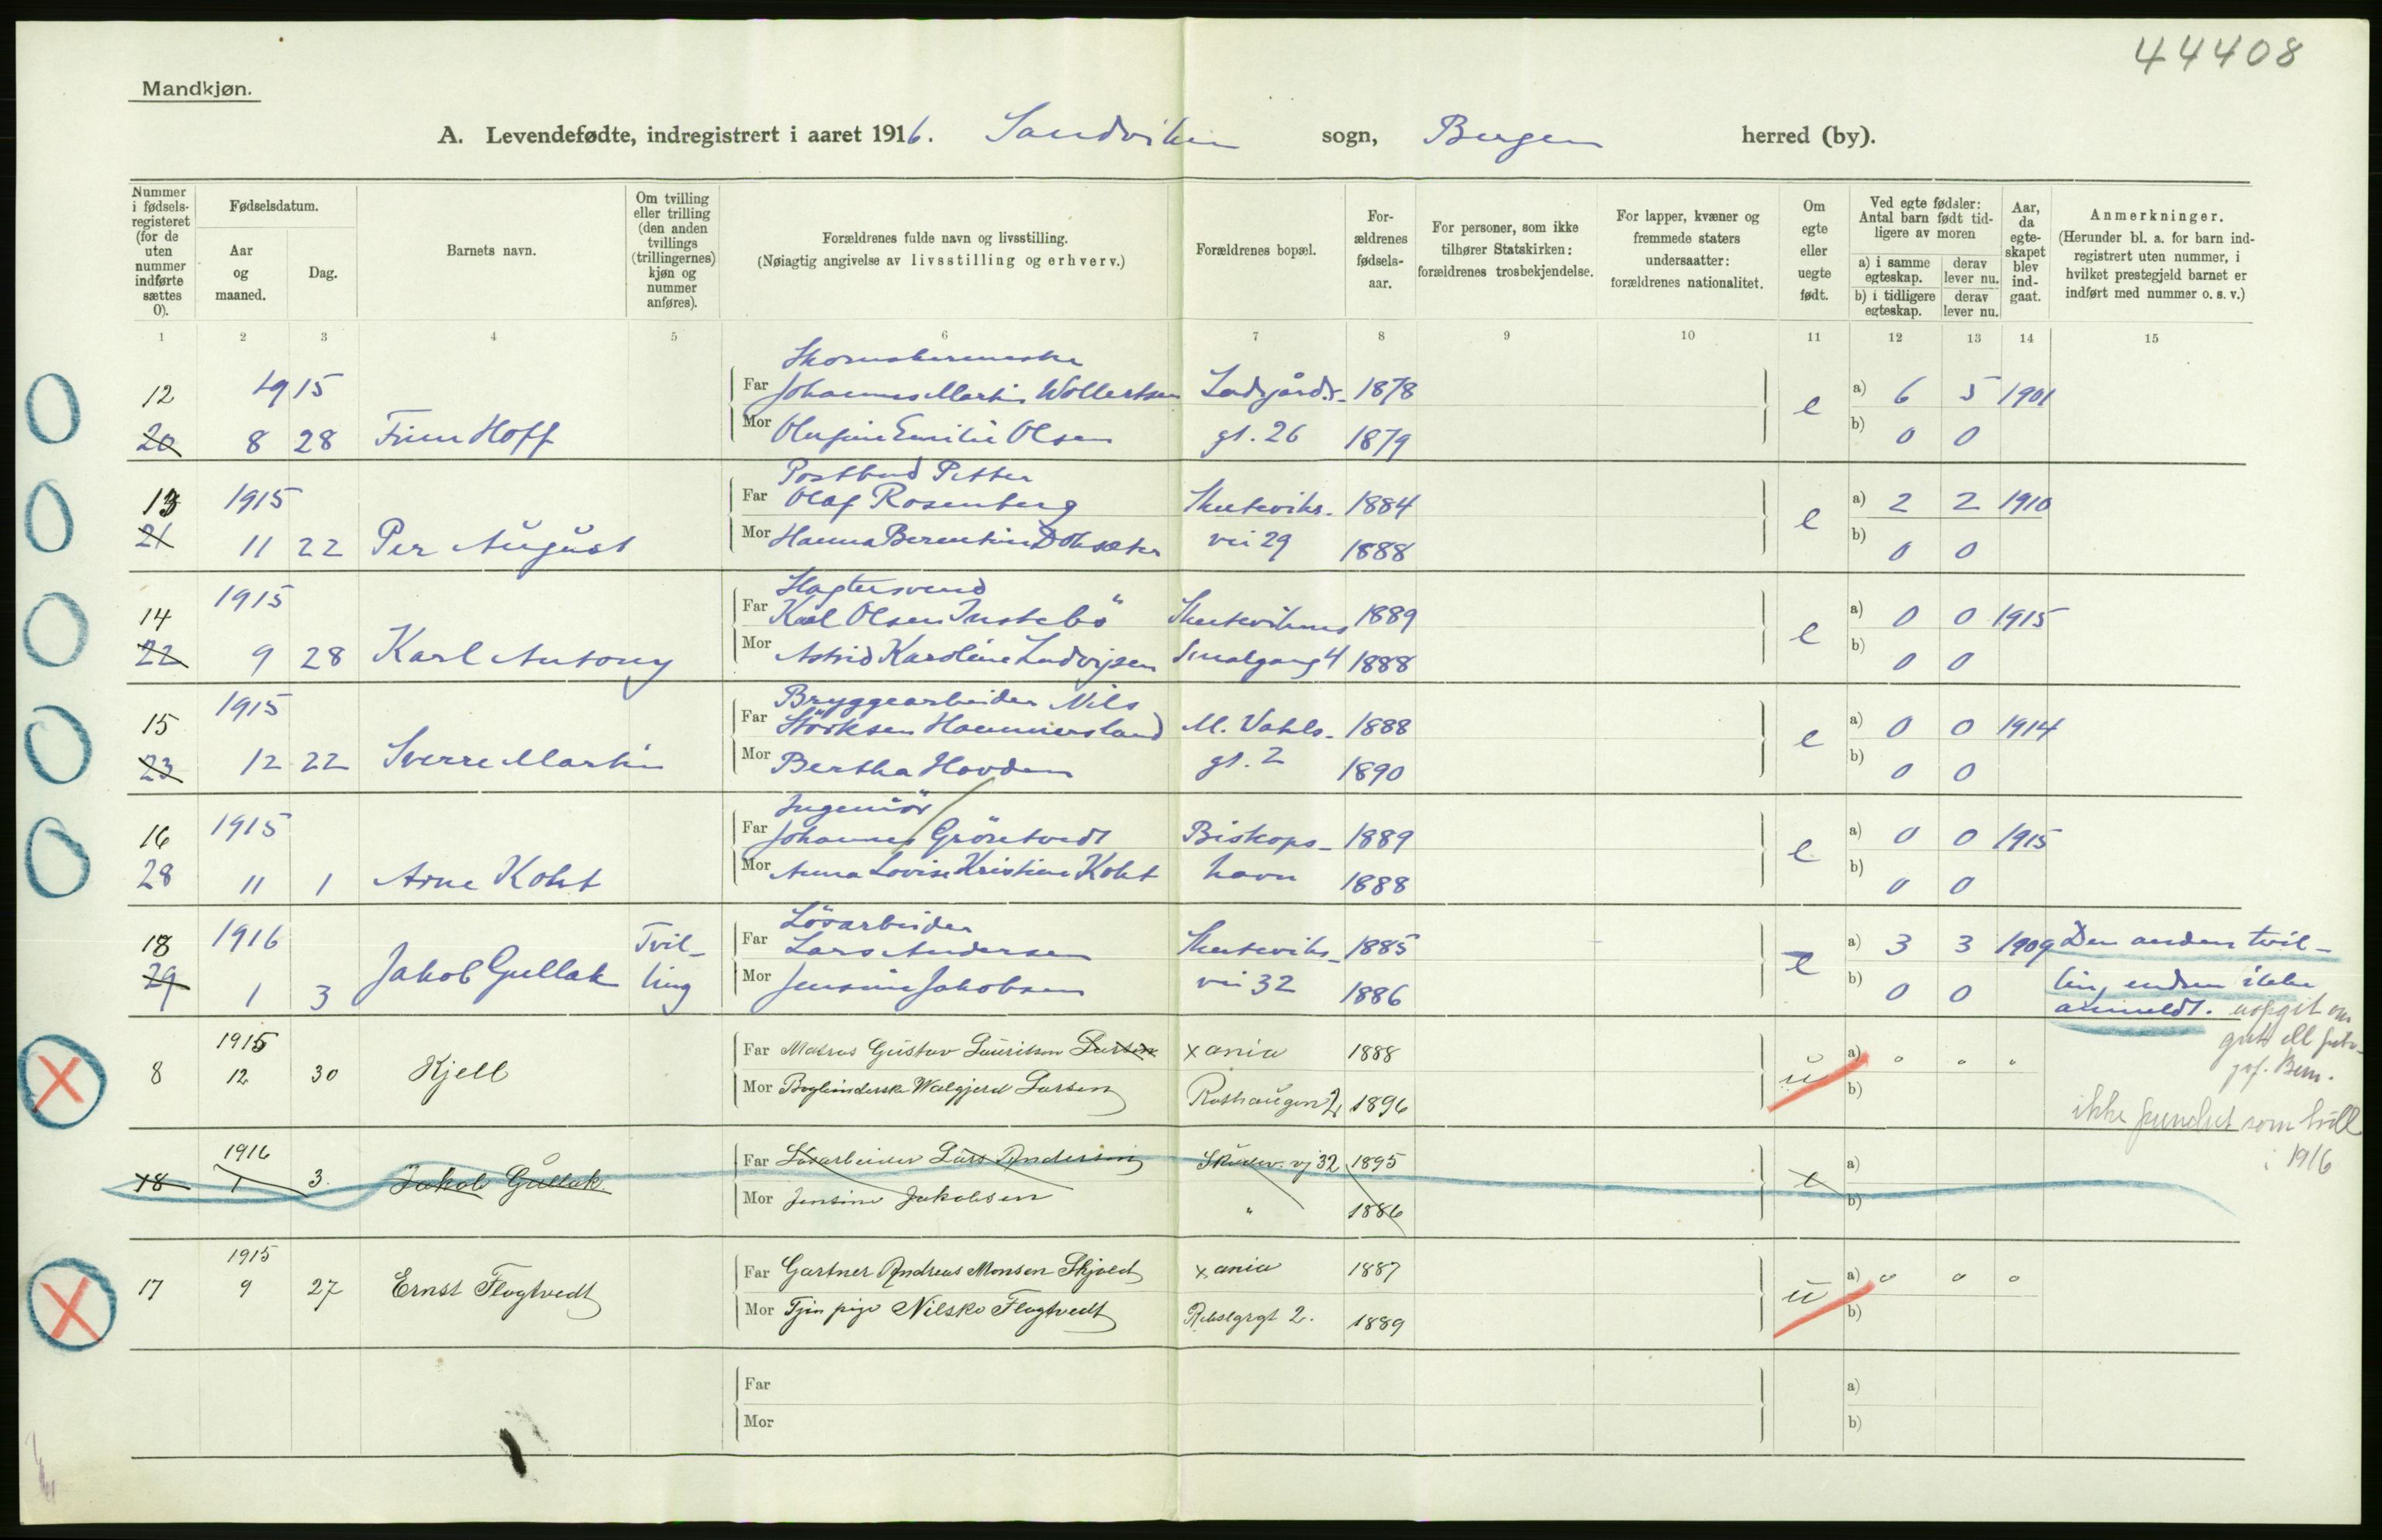 44408
Mandkjøn.
A. Levendefødte, indregistrert i aaret 1916. Sandviken sogn, Bergen herred (by).
Nummer i fødsels-registeret (for de uten nummer indførte sættes 0).
Fødselsdatum.
Aar og maaned.
Dag.
Barnets navn.
Om tvilling eller trilling (den anden tvillings (trillingernes) kjøn og nummer anføres).
Forældrenes fulde navn og livsstilling.
(Nøiagtig angivelse av livsstilling og erhverv.)
Forældrenes bopæl.
For-ældrenes fødsels-aar.
For personer, som ikke tilhører Statskirken: forældrenes trosbekjendelse.
For lapper, kvæner og fremmede staters undersaatter: forældrenes nationalitet.
Om egte eller uegte født.
Ved egte fødsler: Antal barn født tid-ligere av moren
a) i samme egteskap. derav lever nu.
b) i tidligere egteskap. derav lever nu.
Aar, da egte-skapet blev ind-gaat.
Anmerkninger.
(Herunder bl. a. for barn ind-registrert uten nummer, i hvilket prestegjeld barnet er indført med nummer o. s. v.)
1 2 3 4 5 6 7 8 9 10 11 12 13 14 15
Skomakermester
12 1915 Far Johannes Martin Wollertsen Ladegårds- 1878 e a) 6 5 1901
20 8 28 Finn Hoff Mor Olufine Emilie Olsen gt. 26 1879 b) 0 0
Postbud Petter
13 1915 Far Olaf Rosenberg Skuteviks- 1884 e a) 2 2 1910
21 11 22 Per August Mor Hanna Berentine vei 29 1888 b) 0 0
Slagtersvend
14 1915 Far Karl Olsen Instebö Skutevikens 1889 e a) 0 0 1915
22 9 28 Karl Antony Mor Astrid Karoline Ludvigsen Smalgang 4 1888 b) 0 0
Bryggearbeider Nils
15 1915 Far Störksen Hammersland M. Vahls- 1888 e a) 0 0 1914
23 12 22 Sverre Martin Mor Bertha Hovden gt. 2 1890 b) 0 0
Ingeniör
16 1915 Far Johannes Grösetvedt Biskops- 1889 e a) 0 0 1915
28 11 1 Arne Koht Mor Anna Lovise Kristine Koht havn 1888 b) 0 0
Lösarbeider
18 1916 Tvil- Far Lars Andersen Skuteviks- 1885 e a) 3 3 1909 Den anden tvil-
29 1 3 Jakob Gullak ling Mor Jensine Jakobsen vei 32 1886 b) 0 0 ling, endnu ikke
anmeldt. uopgit om
gut ell pike
1915 Far Matros Gustav Lauritson Larsen xania 1888 a) " " "
8 12 30 Kjell Mor Walgjerd Larsen Rothaugen 2 1896 u b)
ikke fundet som tvill
i 1916
1916 Far Lösarbeider Lars Andersen Skutev. vj 32 1895 a)
18 1 3. Jakob Gullak Mor Jensine Jakobsen " 1886 e b)
1915 Far Gartner Andreas Monsen Skjold xania 1887 a) 0 0 0
17 9 27 Ernst Flogtvedt Mor Tjen pige Nilsko Flogtvedt 2. 1889 u b)
Far a)
Mor b)